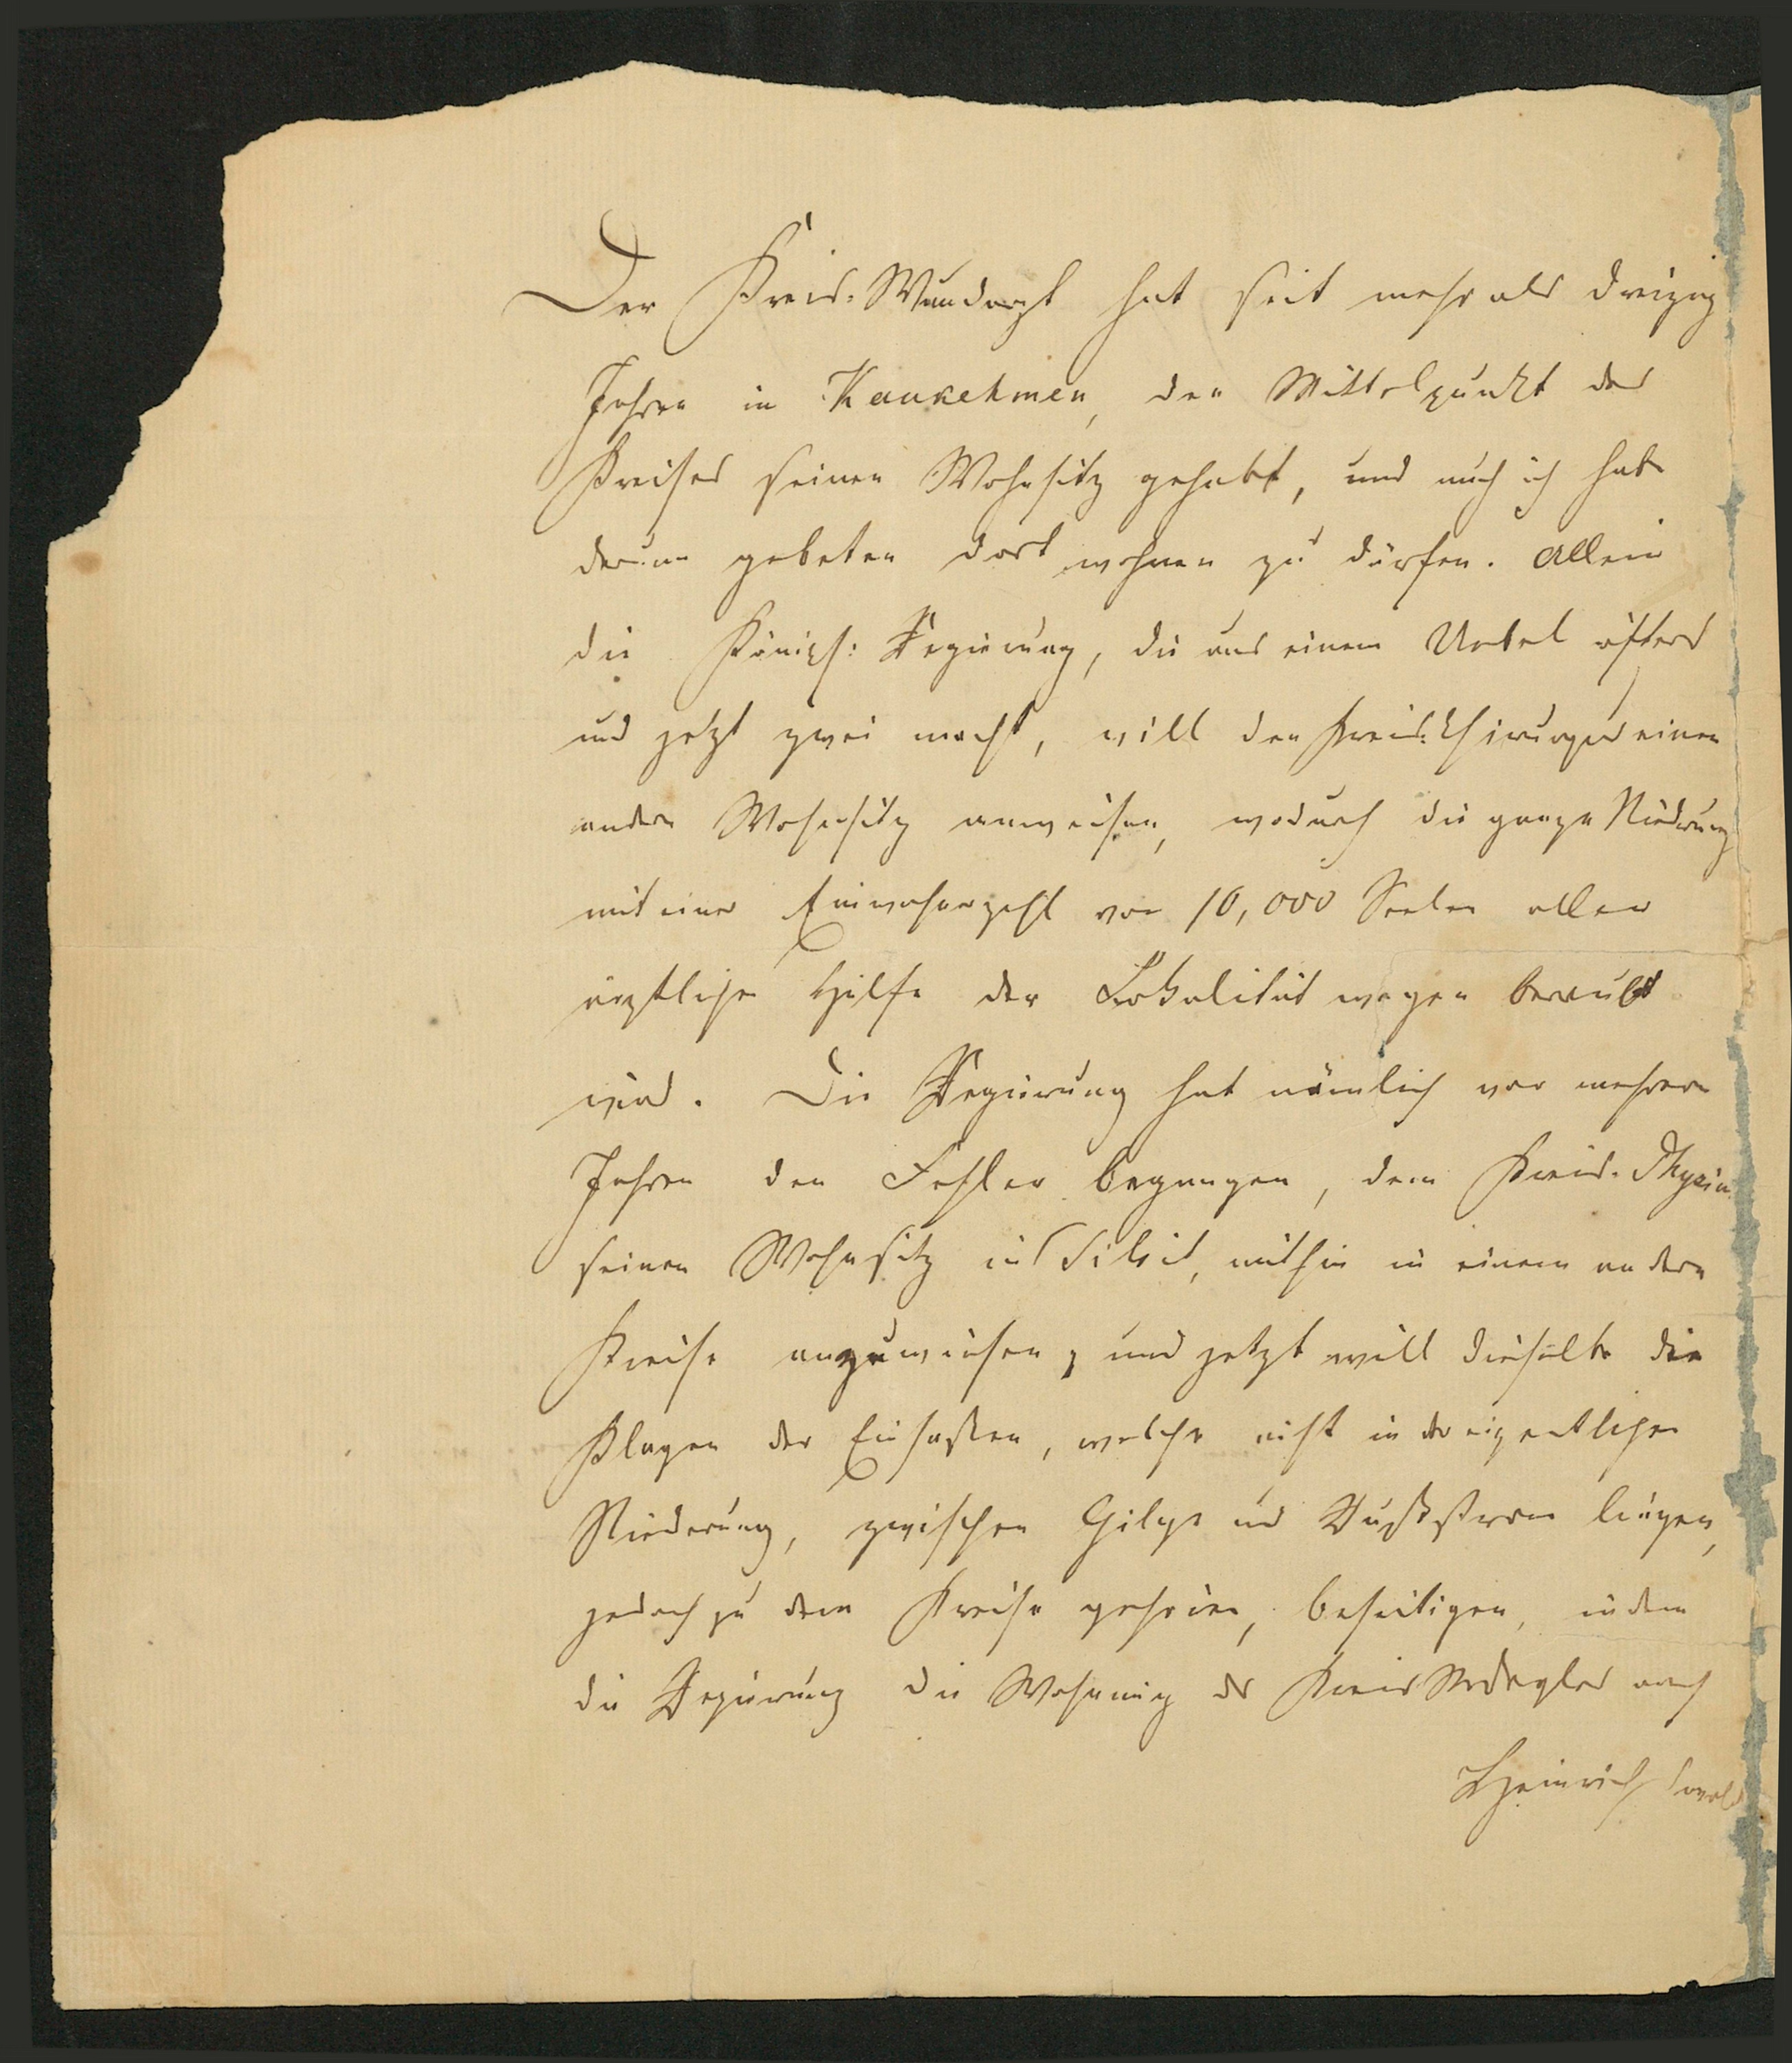 Der Kreis-Wundarzt hat seit mehr als dreizig
Jahren in Kaukehmen, den Mittelpunkt des
Kreises seinen Wohnsitz gehabt, und auch ich habe
darum gebeten dort wohnen zu dürfen. Allein
die Königl: Regierung, die aus einem Uebel öfters
und jetzt zwei macht, will den Kreis-Chirurgus einen
andern Wohnsitz anweisen, wodurch die ganze Niedrung
mit einer Einwohnerzahl von 10,000 Seelen aller
ärztlichen Hilfe der Lokalität wegen beraubt
wird. Die Regierung hat nämlich vor mehrern
Jahren den Fehler begangen, dem Kreis-Physicus
seinen Wohnsitz in Tilsit, mithin in einem andern
Kreise anzuweisen, und jetzt will dieselbe die
Klagen der Einsassen, welche nicht in der eigentlichen
Niederung, zwischen Gilge und Rußstrom liegen,
jedoch zu dem Kreise gehören, beseitigen, indem
die Regierung die Wohnung des Kreis Wdarztes nach
Heinrich